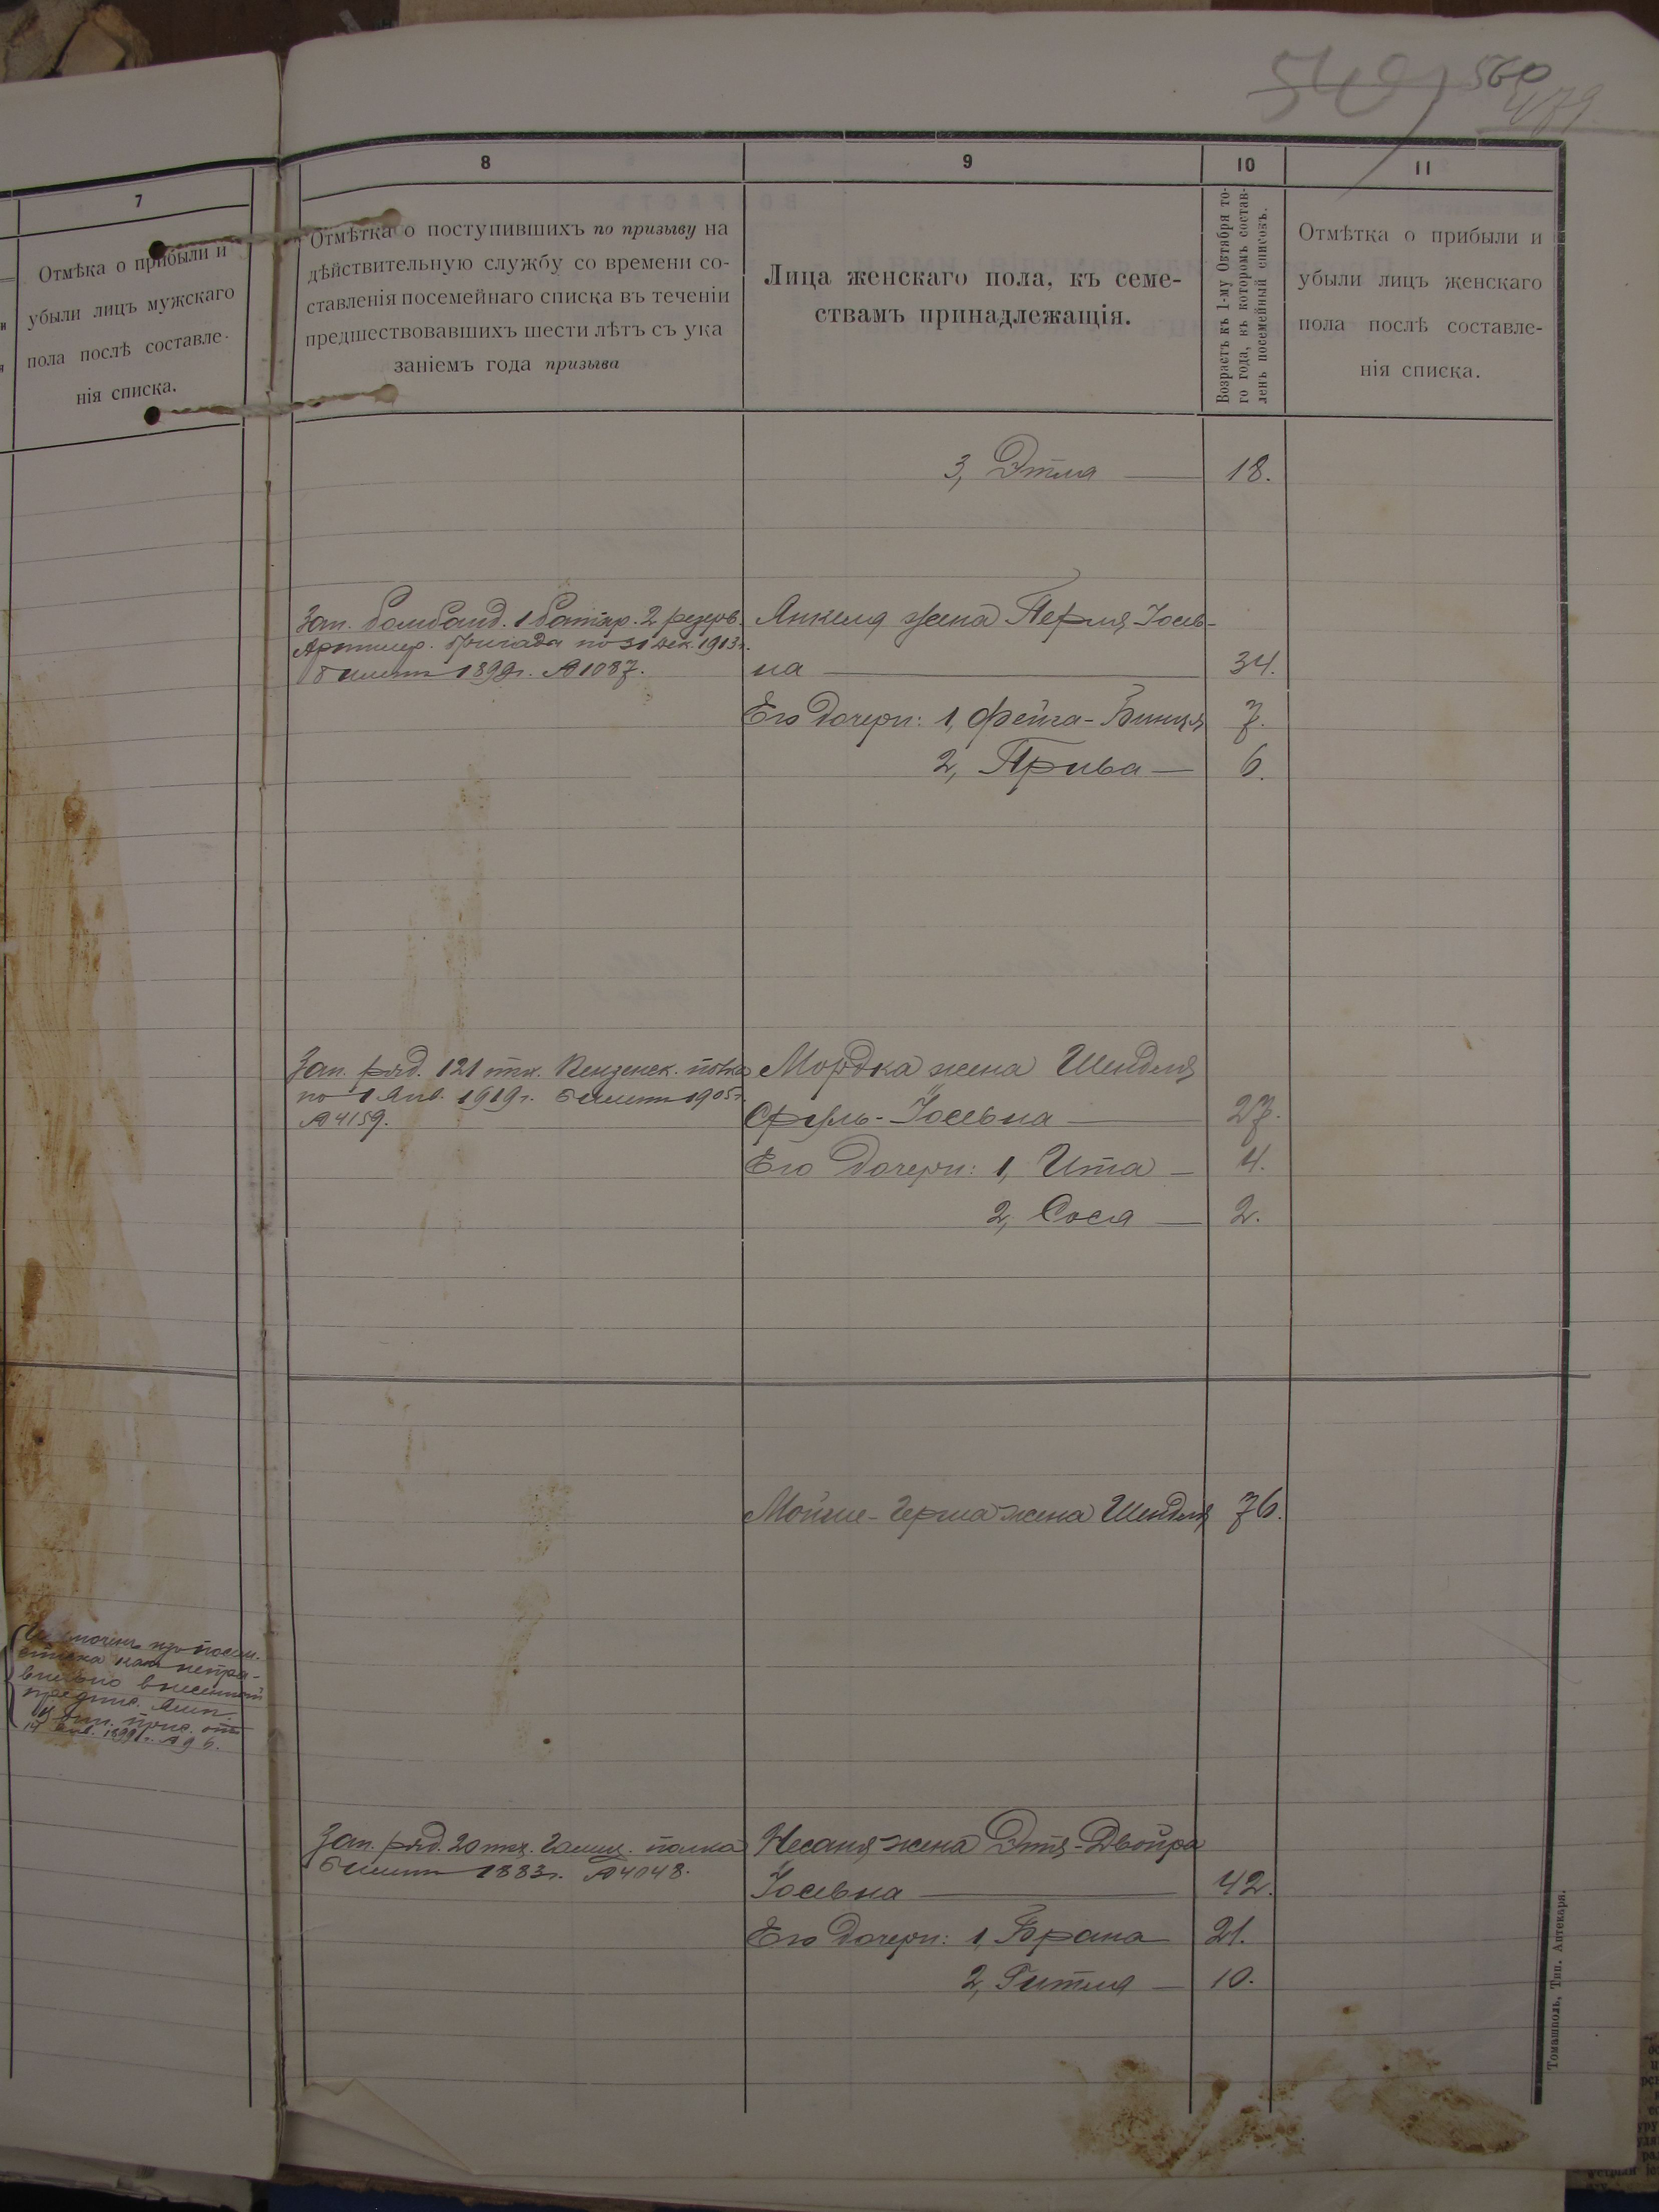 540 560
479
7
Отмѣка о прибыли и
убыли лицъ мужскаго
пола послѣ составле-
нія списка.
8
Отмѣтка о поступившихъ по призыву на
дѣйствительную службу со времени со-
ставленія посемейнаго списка въ теченіи
предшествовавшихъ шести лѣтъ съ ука
заніемъ года призыва
9
Лица женскаго пола, къ семе-
ствамъ принадлежащія.
10
Возрастъ къ 1-му Октября то-
го года, къ которомъ состав-
ленъ посемейный списокъ.
11
Отмѣтка о прибыли и
убыли лицъ женскаго
пола послѣ составле-
нія списка.
3, Этля 18.
Зап. бомбанд. 1 батар. 2 резерв.
Артилер. бригада по 31 дек. 1913 г.
билетъ 1899 г. № 1087.
Янкеля жена Перля Іосев-
на 34.
Его дочери: 1, Фейга-Бинця 7.
2, Прива 6.
Зап. ряд. 121 пех. Пензенск. полка
по 1 Янв. 1919 г. билетъ 1905 г.
№ 4159.
Мордка жена Шендля
Сруль-Іосевна 27.
Его дочери: 1, Ита 4.
2, Сося 2.
Мойше-Герша жена Шендля 76.
изъ посем.
списка какъ непра-
вильно внесенный
предпис. Ямп.
У. воин. прис. отъ
14 янв. 1899 г. № 96.
Зап. ряд. 20 пех. Галиц. полка
билетъ 1883 г. № 4048.
Несаня жена Этя-Двойра
Іосевна 42.
Его дочери: 1, Брана 21.
2, Гитля 10.
Томашполь, Тип. Аптекаря.